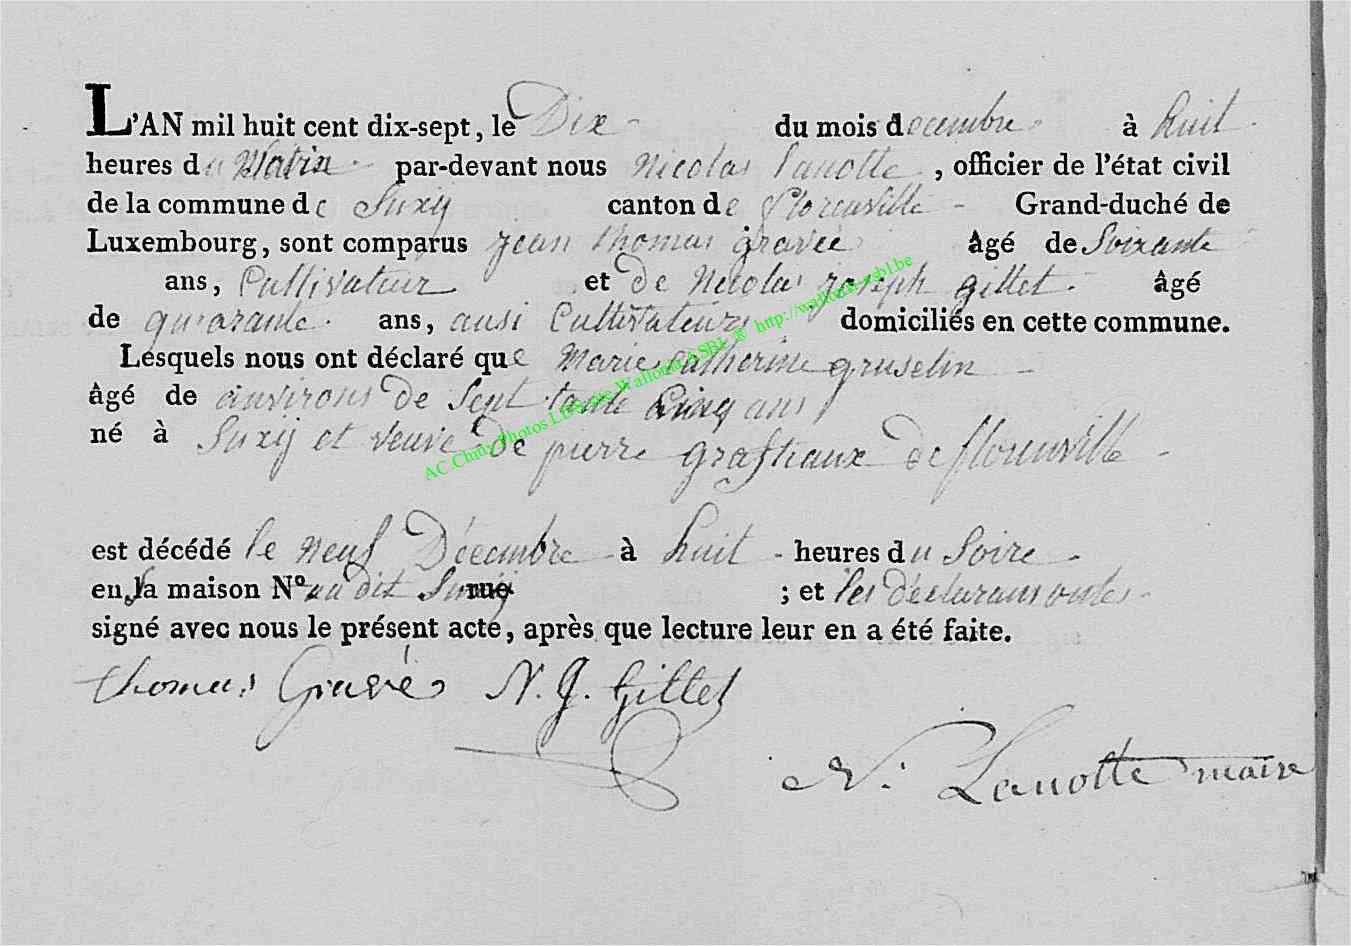 L'AN mil huit cent dix-sept, le Dix du mois decembre à huit
heures du Matin par-devant nous Nicolas Lanotte, officier de l'état civil
de la commune de Suxÿ canton de florenville Grand-duché de
Luxembourg, sont comparus jean thomas gravée âgé de Soixante
ans, Cultivateur et de Nicolas joseph gillet âgé
de quarante ans, ausi Cultivateurs domiciliés en cette commune.
Lesquels nous ont déclaré que Marie catherine gruselin
âgé de anvirons de Sept tante Cinq ans
né à Suxÿ et veuve de pierre de florenville
est décédé le neuf Décembre à huit heures du Soire
en la maison Nº au dit Suxÿ rue ; et les déclarans ontes
signé avec nous le présent acte, après que lecture leur en a été faite.
thomas Gravés N. J. Gillet
N. Lanotte maire
AC Chiny Photos Wallonia ASBL @ http://wallonia-asbl.be